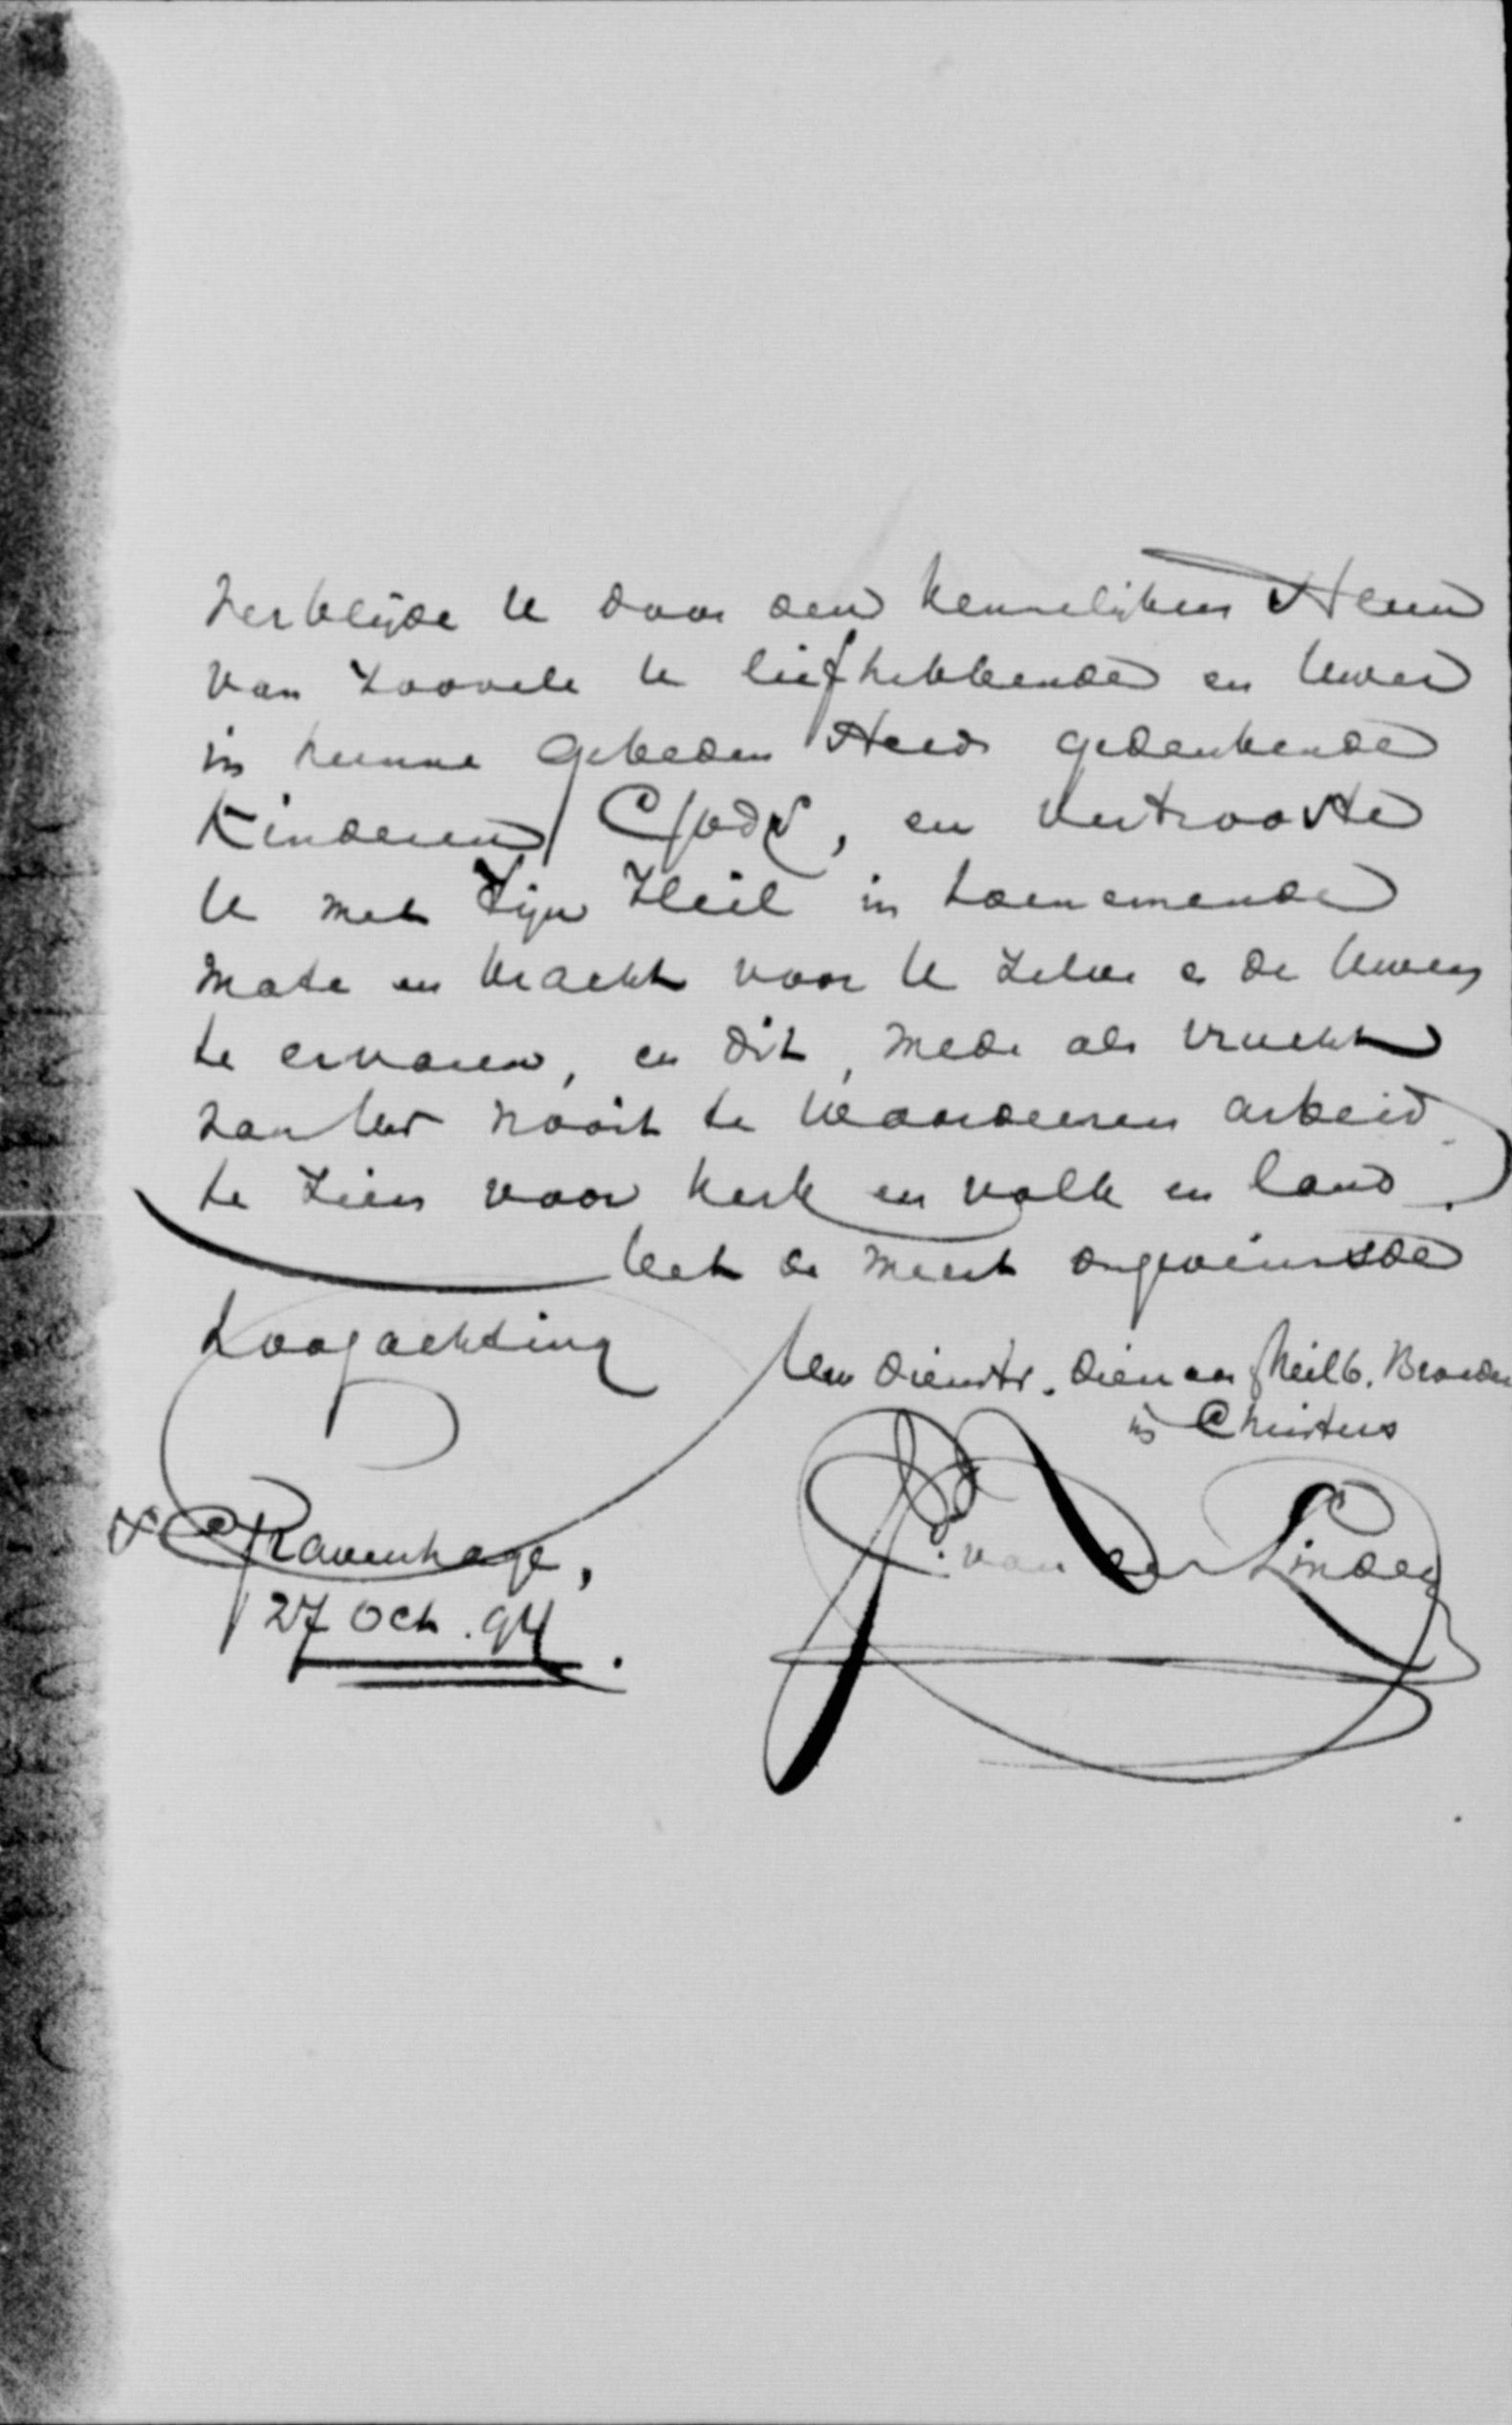 verblijde U door den kennelijken steun
van zoovele U liefhebbende en Uwer
in hunne gebeden steeds gedenkende
Kinderen Gods, en vertrooste
U met Zijn Heil in toenemende
mate en kracht voor U zelve en de Uwen
te ervaren, en dit, mede als vrucht
van Uw nooit te waardeeren arbeid
te zien voor kerk en volk en land.
Met de meest ongeveinsde
hoogachting
Uw dienstv. dienaar & heilb. Broeder
in Christus
's Gravenhage,
27 Oct. 94.
van der Linden